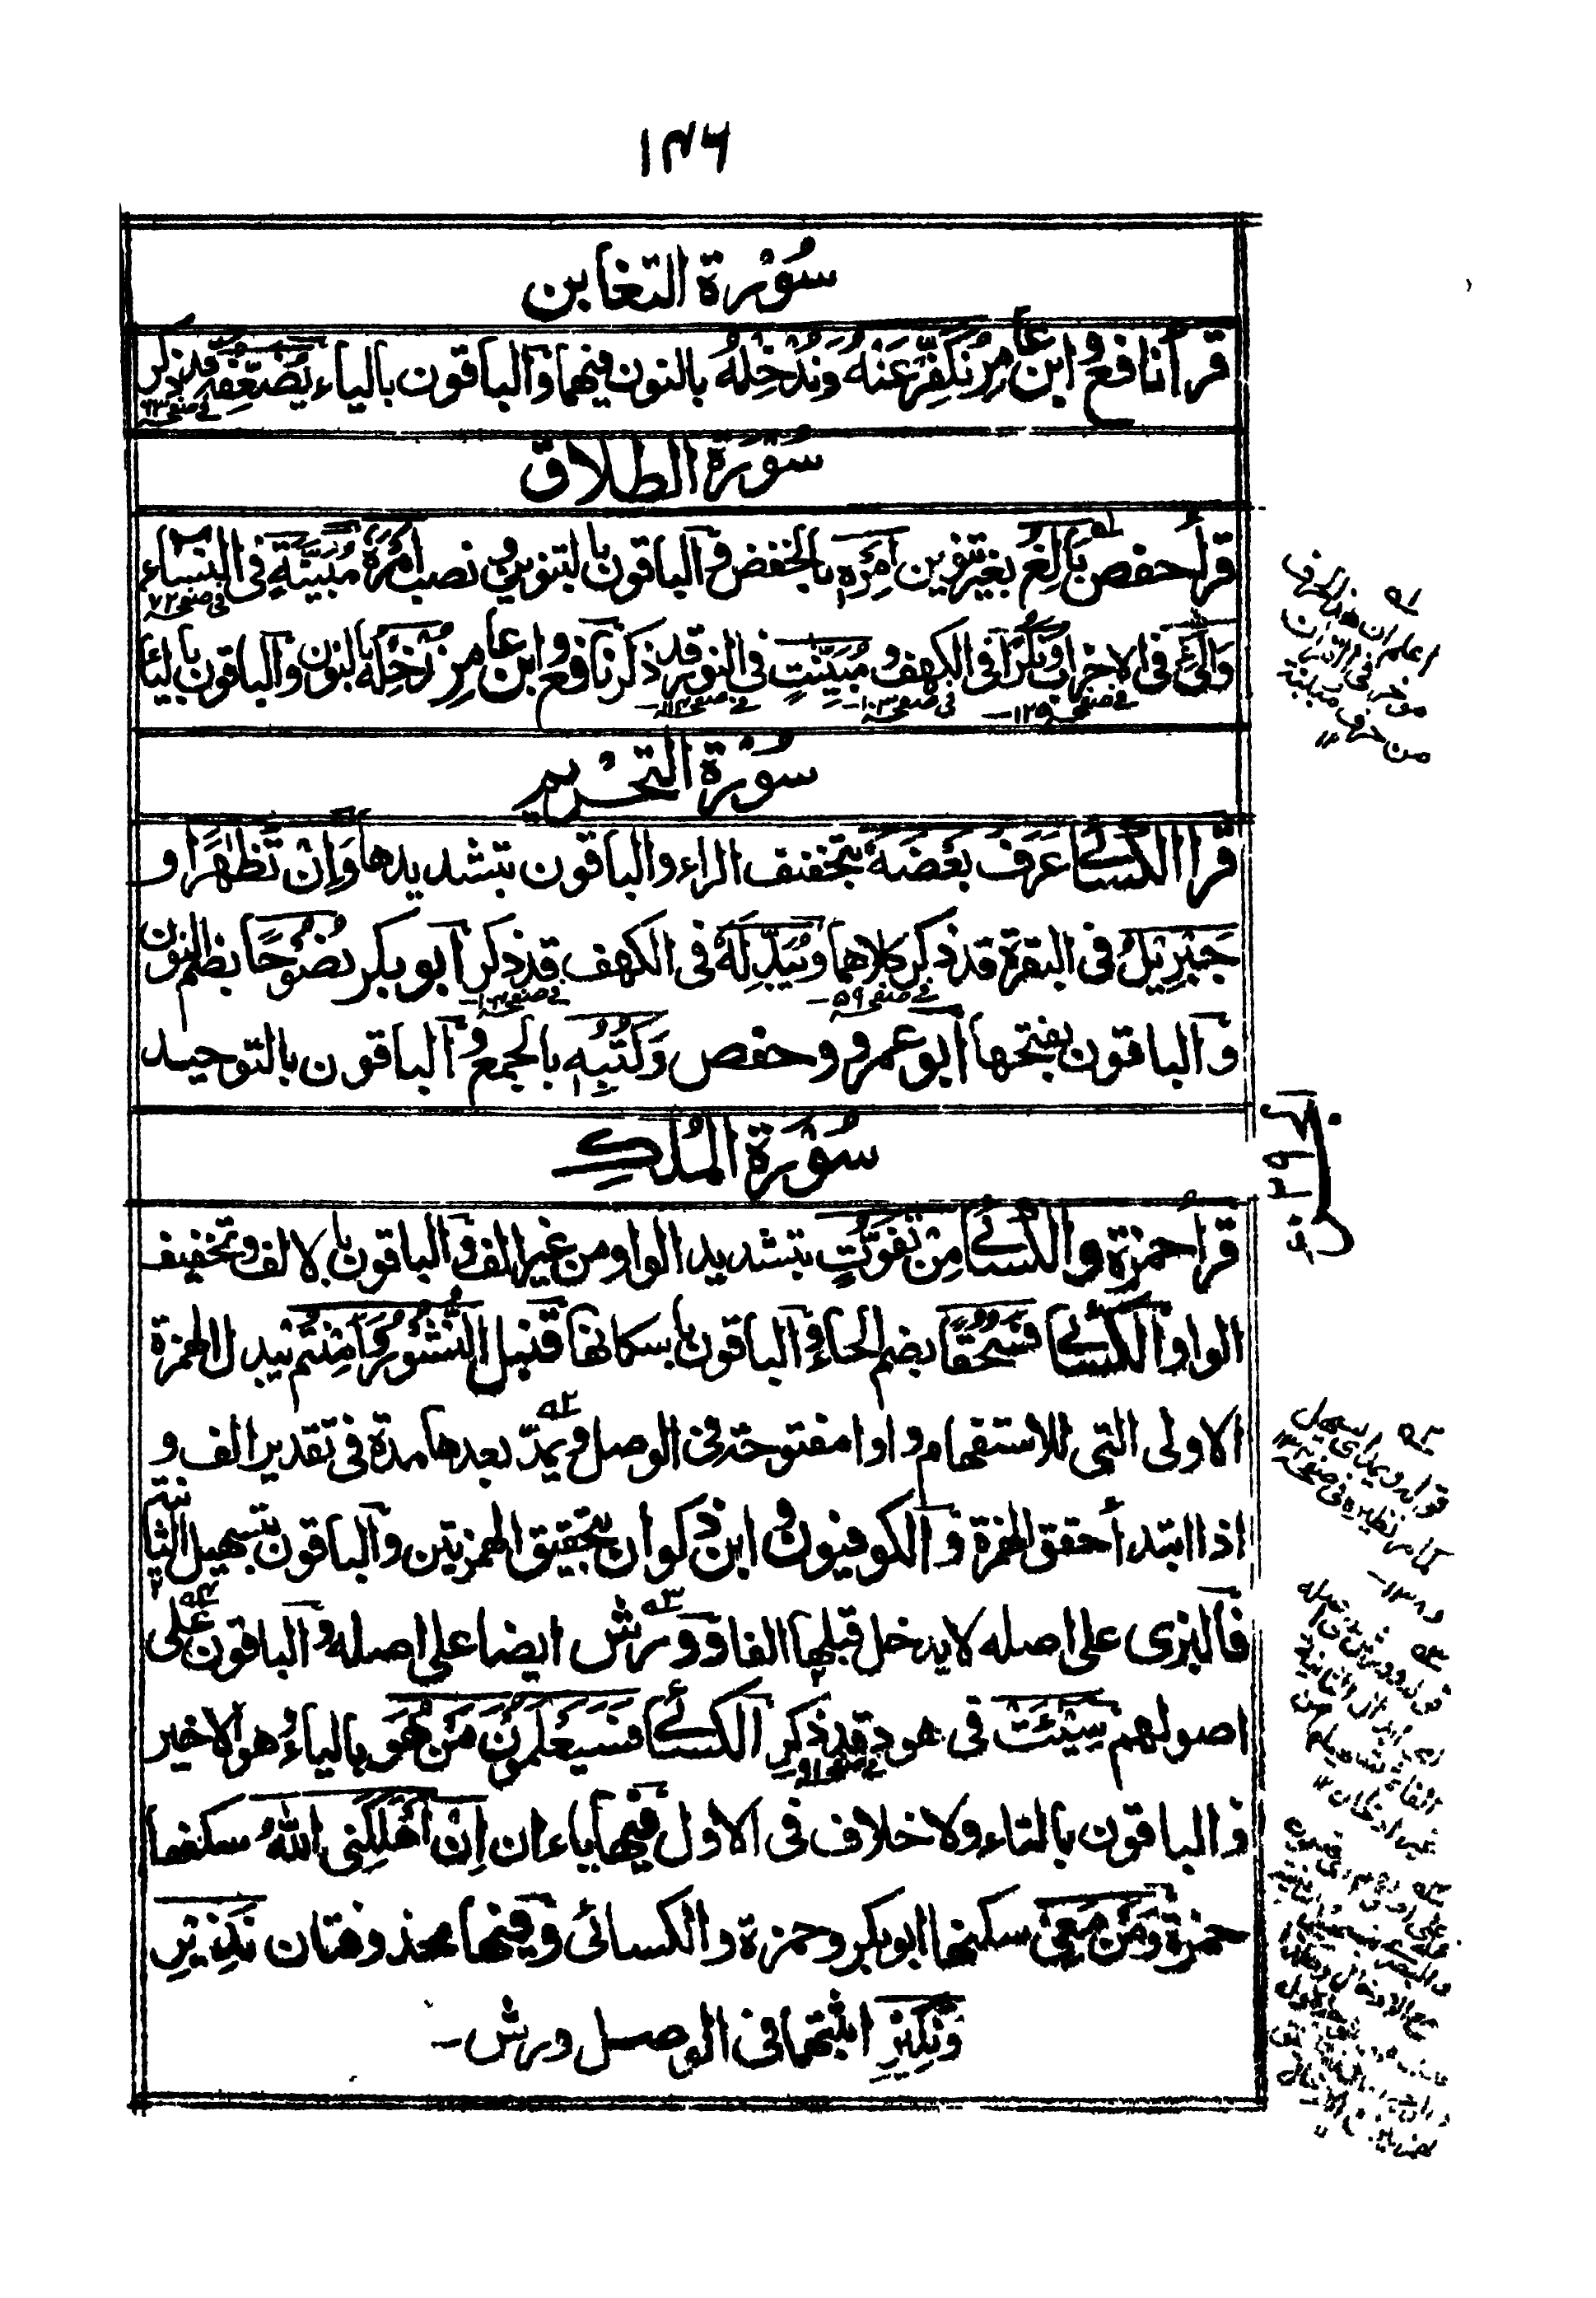 ١٣٦
سُوْرة التغابن
قرأ نافع و ابن عامر نُكَفِّرْ عَنْهُ وَنُدْخِلْهُ بالنون فيهما والباقون بالياء يُضٰعِفه قد ذكر
فى صفحه ٦٣
سُوْرَة الطلاق
قرأ حفص بَالِغُ بغير تنوين اَمْرِهٖ بالخفض والباقون بالتنوين ونصب اَمْرَهٗ مُبَيِّنَةٍ فى النساء
فى صفحه ٧٢
وَالّٰـِٔىْ فى الاحزاب ونُكْرًا فى الكهف و مُبَيِّنٰتٍ فى النور قد ذكر نافع و ابن عامر نُدْخِلْهُ بالنون والباقون بالياء
فى صفحه ١٢٥ فى صفحه ١٠٣ فى صفحه ١١٣
سُوْرة التحْريم
قرأ الكسائى عَرَفَ بَعْضَهٗ بتخفيف الراء والباقون بتشديدها وَاِنْ تَظٰهَرَا و
جَبْرِيْلُ فى البقرة قد ذكر كلاهما ويُبَدِّلَهٗ فى الكهف قد ذكر ابو بكر نُصُوْحًا بضم النون
فى صفحه ٥٩ فى صفحه
والباقون بفتحها ابو عمرو و حفص وَكُتُبِهٖ بالجمع والباقون بالتوحيد
سُوْرة المُلك
قرأ حمزة والكسائى مِنْ تَفَوُّتٍ بتشديد الواو من غير الف والباقون بالالف وتخفيف
الواو الكسائى فَسُحُقًا بضم الحاء والباقون باسكانها قنبل النُّشُوْرُ وَاَمِنْتُمْ يبدل الهمزة
الاولى التى للاستفهام واوا مفتوحة فى الوصل ويمدّ بعدها مدة فى تقدير الف و
اذا ابتدأ حقق الهمزة والكوفيون و ابن ذكوان بتحقيق الهمزتين والباقون بتسهيل الثانية
فالبزى على اصله لا يدخل قبلها الفا وورش ايضا على اصله والباقون على
اصولهم سِيْٓـَٔتْ فى هود قد ذكر الكسائى فَسَيَعْلَمُوْنَ مَنْ هُوَ بالياء وهو الاخير
فى صفحه ٩١
والباقون بالتاء ولا خلاف فى الاول فيها ياءان اِنْ اَهْلَكَنِىَ اللّٰهُ سكنها
حمزة وَمَنْ مَّعِىَ سكنها ابو بكر وحمزة والكسائى وفيها محذوفتان نَذِيْرِ
وَنَكِيْرِ اثبتهما فى الوصل ورش۔
اعلم ان هذا الحرف
مؤخر فى القران
من حرف مبينة ١٢
قوله ويمد اى يسهل
كما مر نظيره فى صفحه